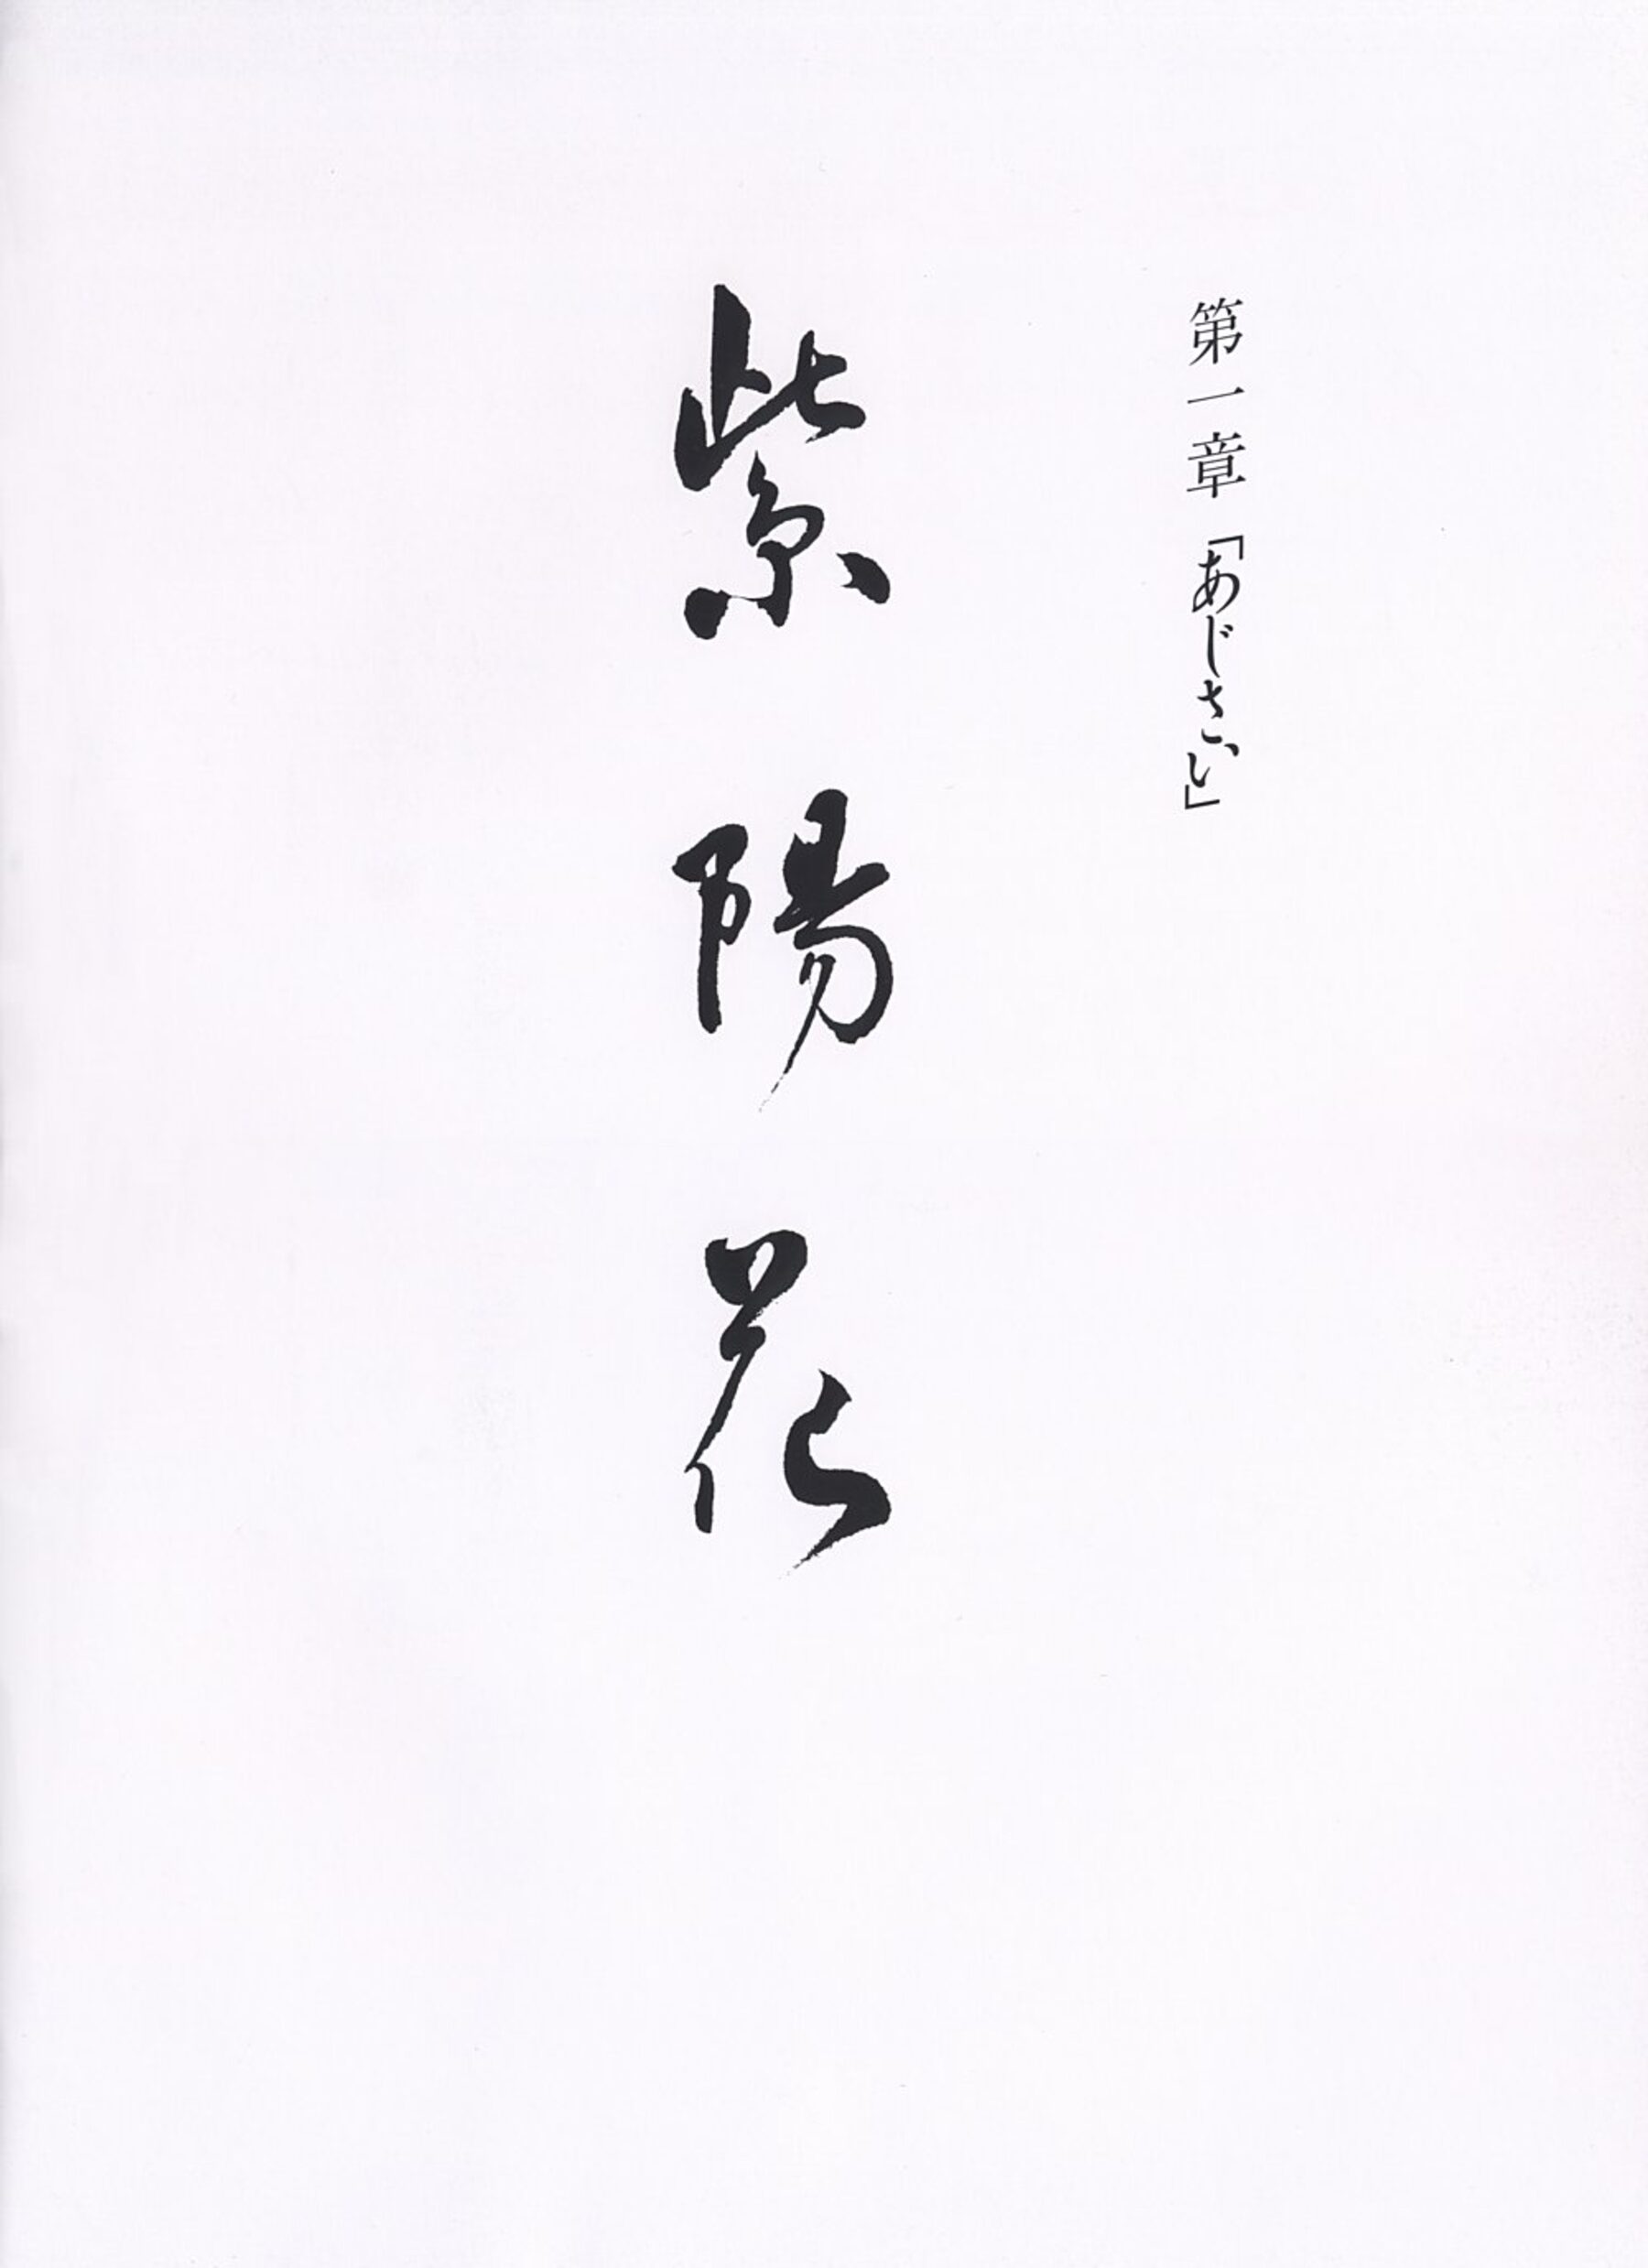 第一章「あじさい」
紫陽花